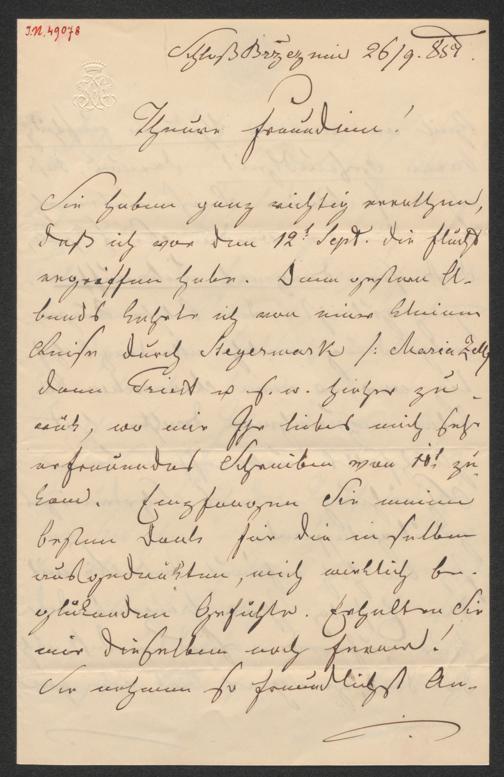 I.N. 49078
Schloß Brzeznin 26/9. 88
Theure Freundinn!
Sie haben ganz richtig errathen,
daß ich vor dem 12t Sept. die Flucht
ergriffen habe. Denn gestern A-
bends kehrte ich von einer kleinen
Reise durch Steyermark /: Maria Zell
dann Triest u s. w. hieher zu-
rük, wo mir Ihr liebes mich sehr
erfreuendes Schreiben vom 11t zu-
kam. Empfangen Sie meinen
besten Dank für die in selben
ausgedrükten, mich wirklich be-
glükenden Gefühle. Erhalten Sie
mir dieselben noch ferner!
Sie nehmen so freundlichst An-